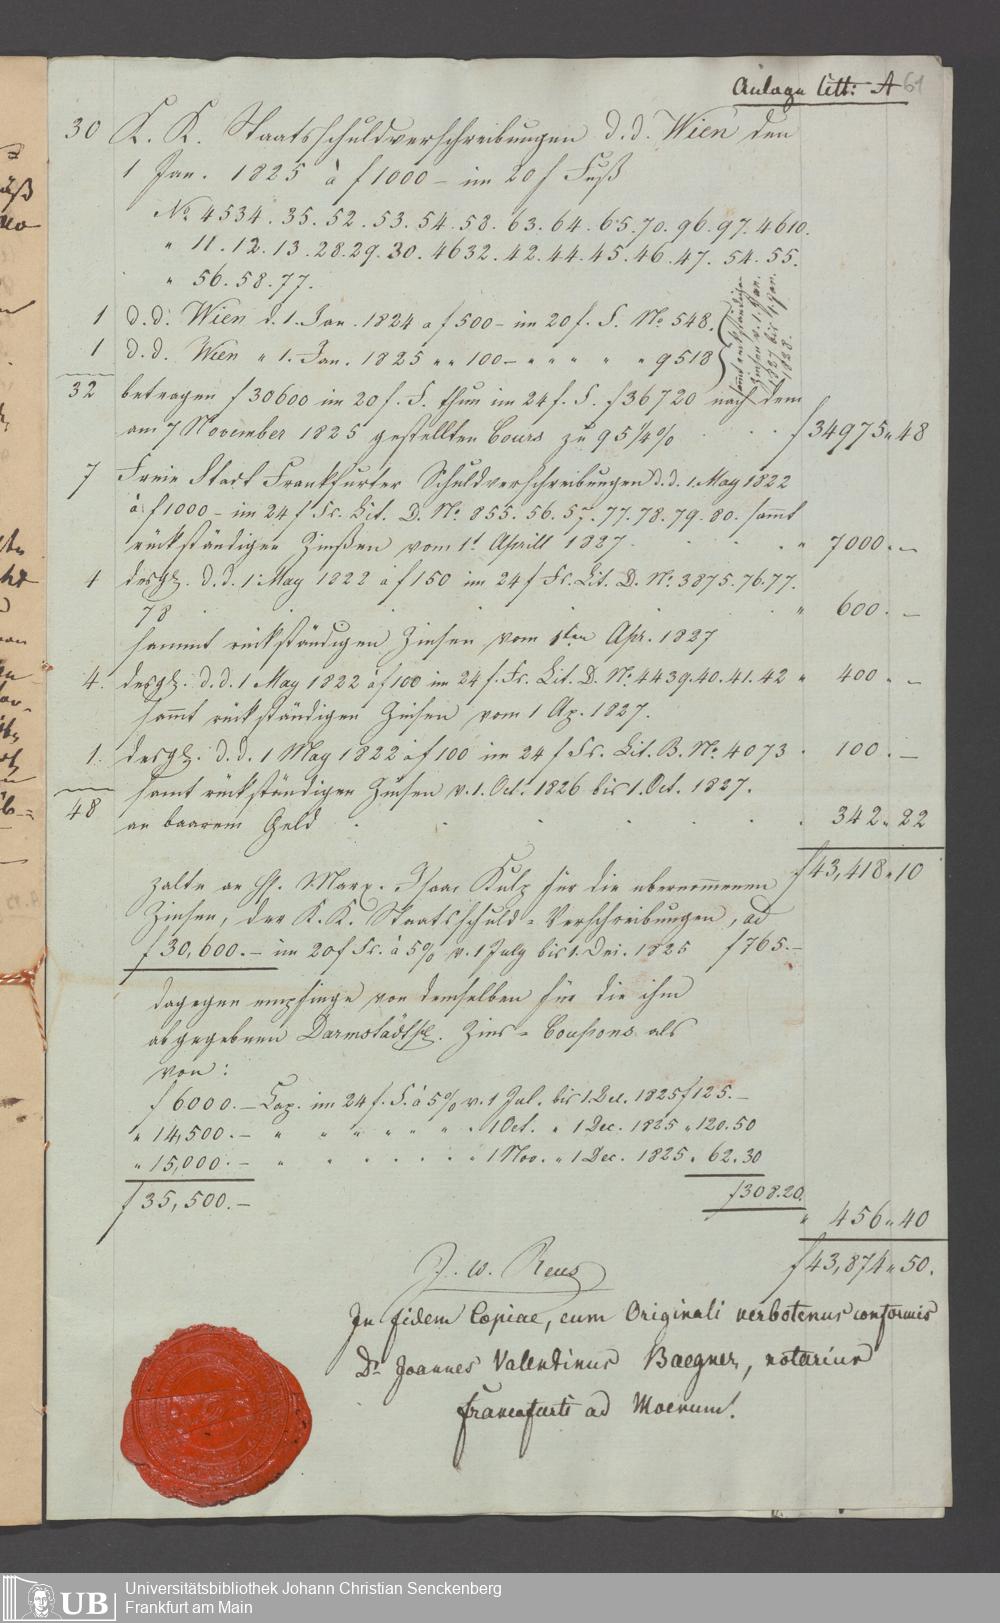 Anlage Litt: A 61
30 K. K. Staatsschuldverschreibungen d.d. Wien den
1 Jan. 1825 à f 1000 – im 20 f Fuß
No 4534. 35. 52. 53. 54. 58. 63. 64. 65. 70. 96. 97. 4610.
" 11. 12. 13. 28. 29. 30. 4632. 42. 44. 45. 46. 47. 54. 55.
" 56. 58. 77.
1 d. d. Wien d. 1. Jan. 1824 a f 500 – im 20 f. F. No 548.
1 d. d. Wien " 1. Jan. 1825 " " 100 – " " " " " 9518
sammt rückständigen
Zinsen v. 1. Jan.
1827 bis 1. Jan.
1828.
32 betragen f 30600 im 20 f. F. thun im 24 f. F. f 36720 nach dem
am 7 November 1825 gestellten Cours zu 95 1/4 % . . f 34975 " 48
7 Freie Stadt Frankfurter Schuldverschreibungen d. d. 1. May 1822
à f 1000 – im 24 f Fs. Lit. D. No. 855. 56. 57. 77. 78. 79. 80. sammt
rückständigen Zinßen vom 1t Aprill 1827 . . . " 7000. " –
4 desgl. d. d. 1 May 1822 à f 150 im 24 f Fs. Lit. D. No. 3875. 76. 77.
78 . . . . . " 600. –
sammt rückständigen Zinsen vom 1ten Apr. 1827
4. desgl. d. d. 1 May 1822 à f 100 im 24 f. Fs. Lit. D. No. 4439. 40. 41. 42 " 400 " –
sammt rückständigen Zinsen vom 1 Ap. 1827.
1. desgl. d. d. 1 May 1822 à f 100 im 24 f Fs. Lit. B. No. 4073 . 100. –
samt rückständigen Zinsen v. 1. Oct. 1826 bis 1. Oct. 1827.
48 an baarem Geld . . . . . . 342 " 22
f 43,418 " 10
zalte an H. Marx. Isaac Kulp für die übernommenen
Zinsen, der K. K. Staatsschuld-Verschreibungen, ad
f 30,600. – im 20 f Fs. à 5% v. 1 July bis 1. Dec. 1825 f 765. –
dagegen empfinge von demselben für die ihm
abgegebnen Darmstädtsch. Zins-Coupons als
von:
f 6000. – Cap. im 24 f. F. à 5% v. 1 Jul. bis 1. Dec. 1825 f 125. –
" 14,500. – " " " " " " " 1 Oct. " 1 Dec. 1825 " 120. 50
" 15,000. – " " " " " " " 1 Nov. " 1 Dec. 1825 " 62. 30
f 35,500. – f 308. 20.
" 456 " 40
f 43,874 " 50.
J. W. Reus
In fidem Copiae, cum Originali verbotenus conformis
Dr. Joannes Valentinus Baegner, notarius
francofurti ad Moenum.
UB
Universitätsbibliothek Johann Christian Senckenberg
Frankfurt am Main